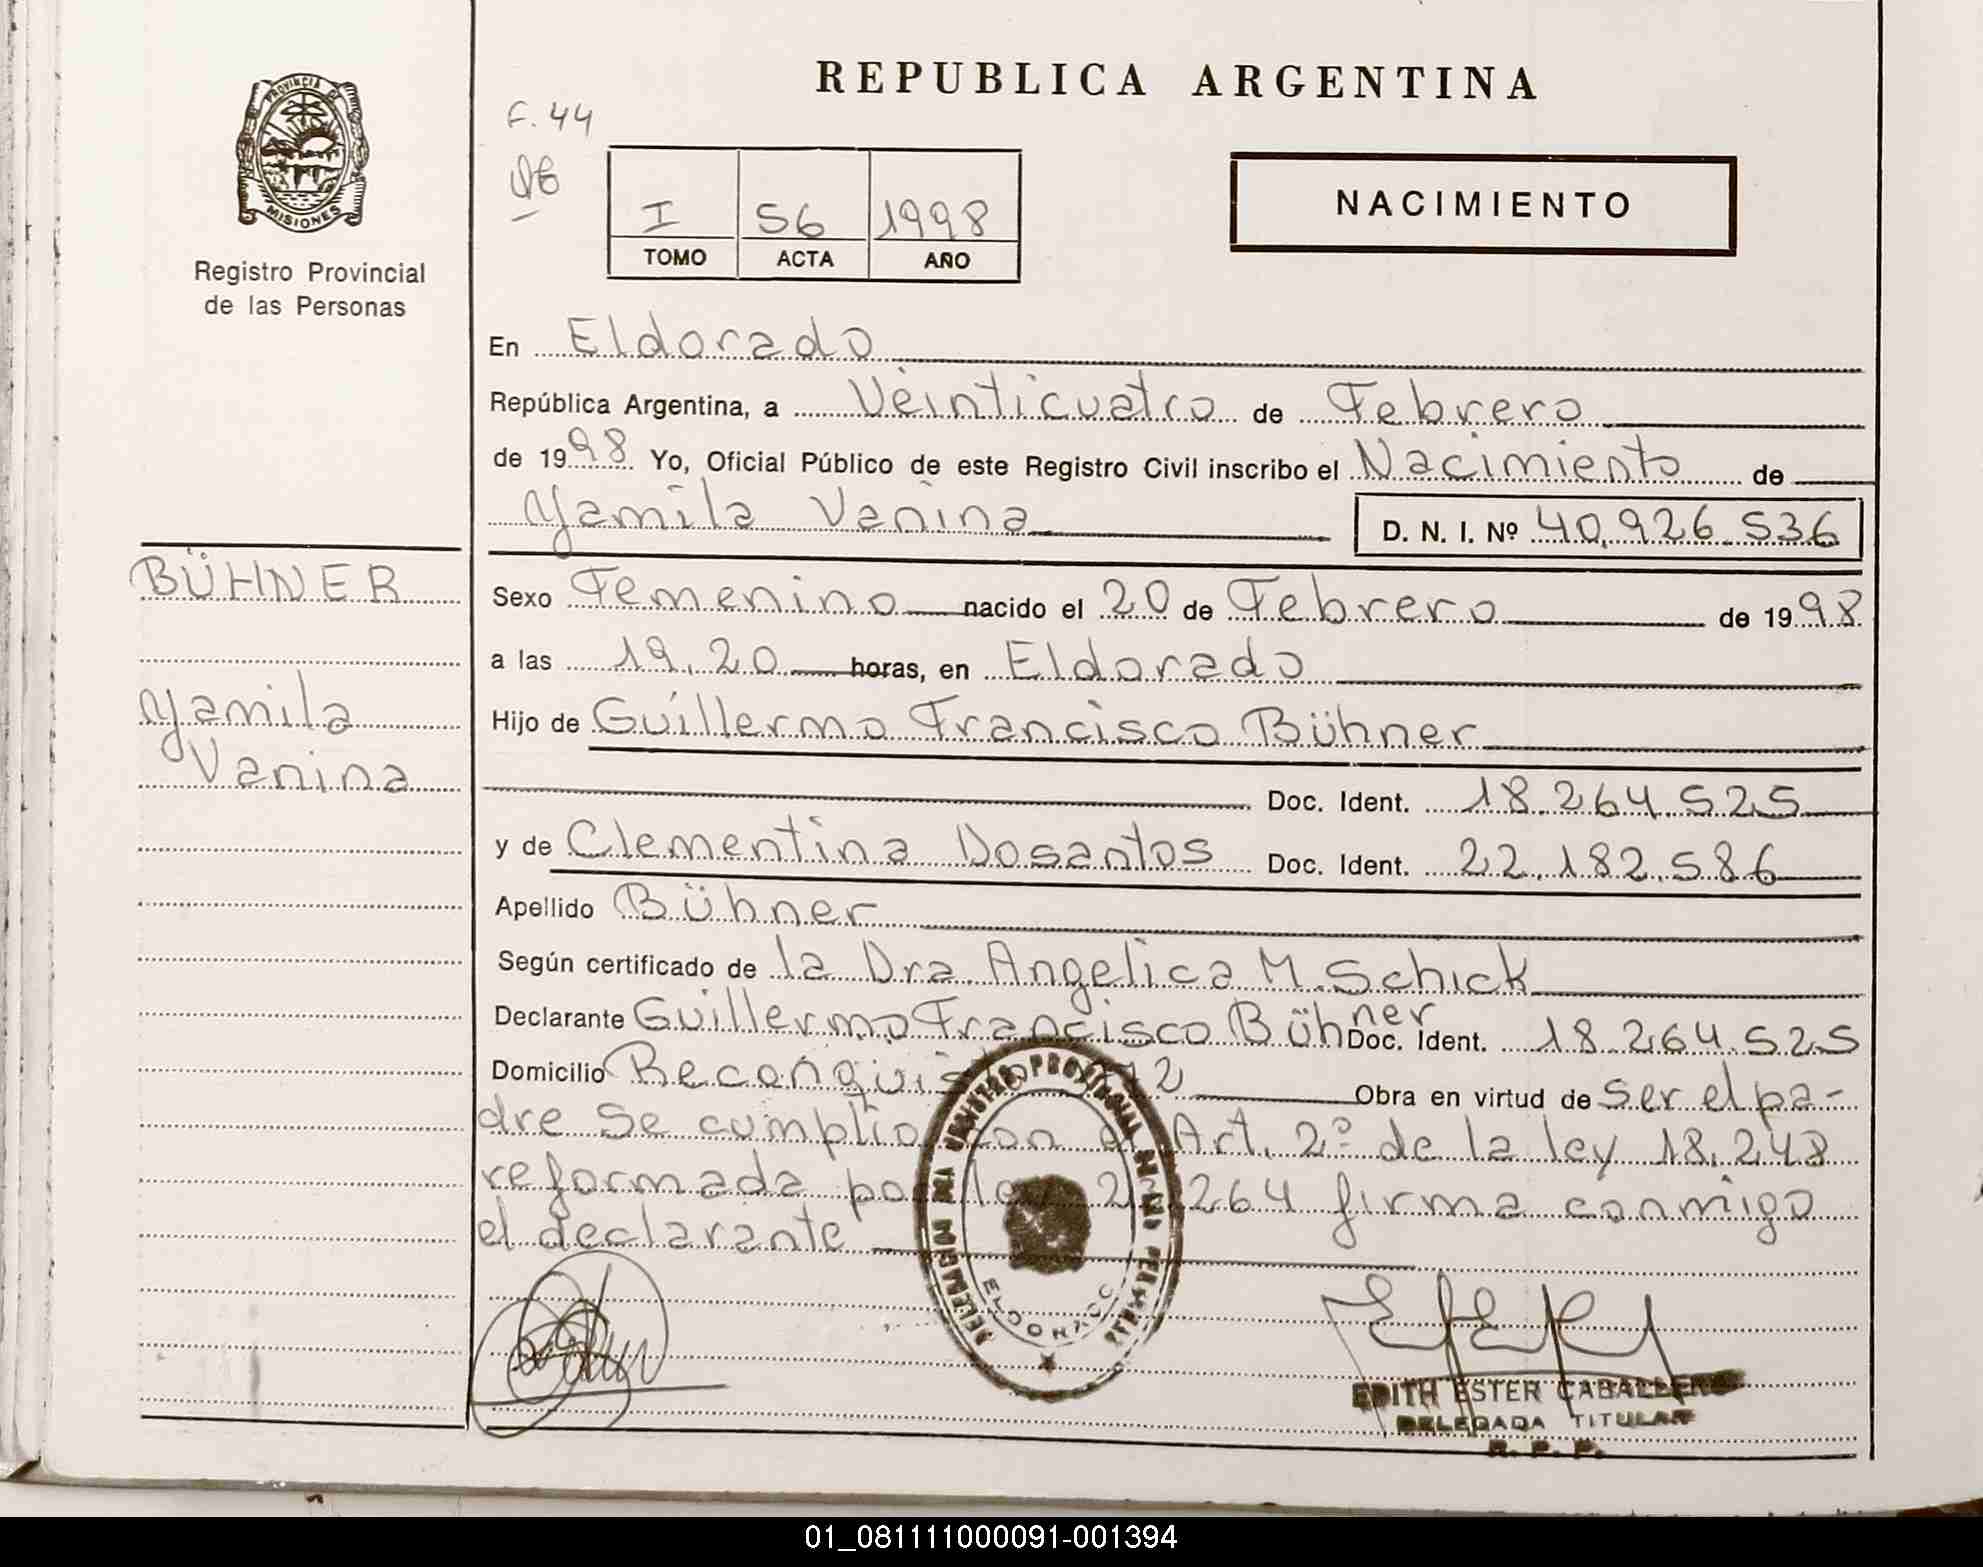 REPUBLICA ARGENTINA
PROVINCIA DE
MISIONES
Registro Provincial
de las Personas
F. 44
I 56 1998
TOMO ACTA AÑO
NACIMIENTO
En Eldorado
República Argentina, a Veinticuatro de Febrero
de 1998 Yo, Oficial Público de este Registro Civil inscribo el Nacimiento de
Yamila Vanina D. N. I. Nº 40.926.536
BÜHNER
Yamila
Vanina
Sexo Femenino nacido el 20 de Febrero de 1998
a las 19,20 horas, en Eldorado
Hijo de Guillermo Francisco Bühner
Doc. Ident. 18.264.525
y de Clementina Dosantos Doc. Ident. 22.182.586
Apellido Bühner
Según certificado de la Dra. Angelica M. Schick
Declarante Guillermo Francisco Bühner Doc. Ident. 18.264.525
Domicilio Obra en virtud de ser el pa-
dre se cumplio con el Art. 2º de la ley 18.248
reformada por ley 264 firma conmigo
el declarante
ELDORADO
EDITH ESTER CABALLERO
DELEGADA TITULAR
R. P. P.
01_081111000091-001394